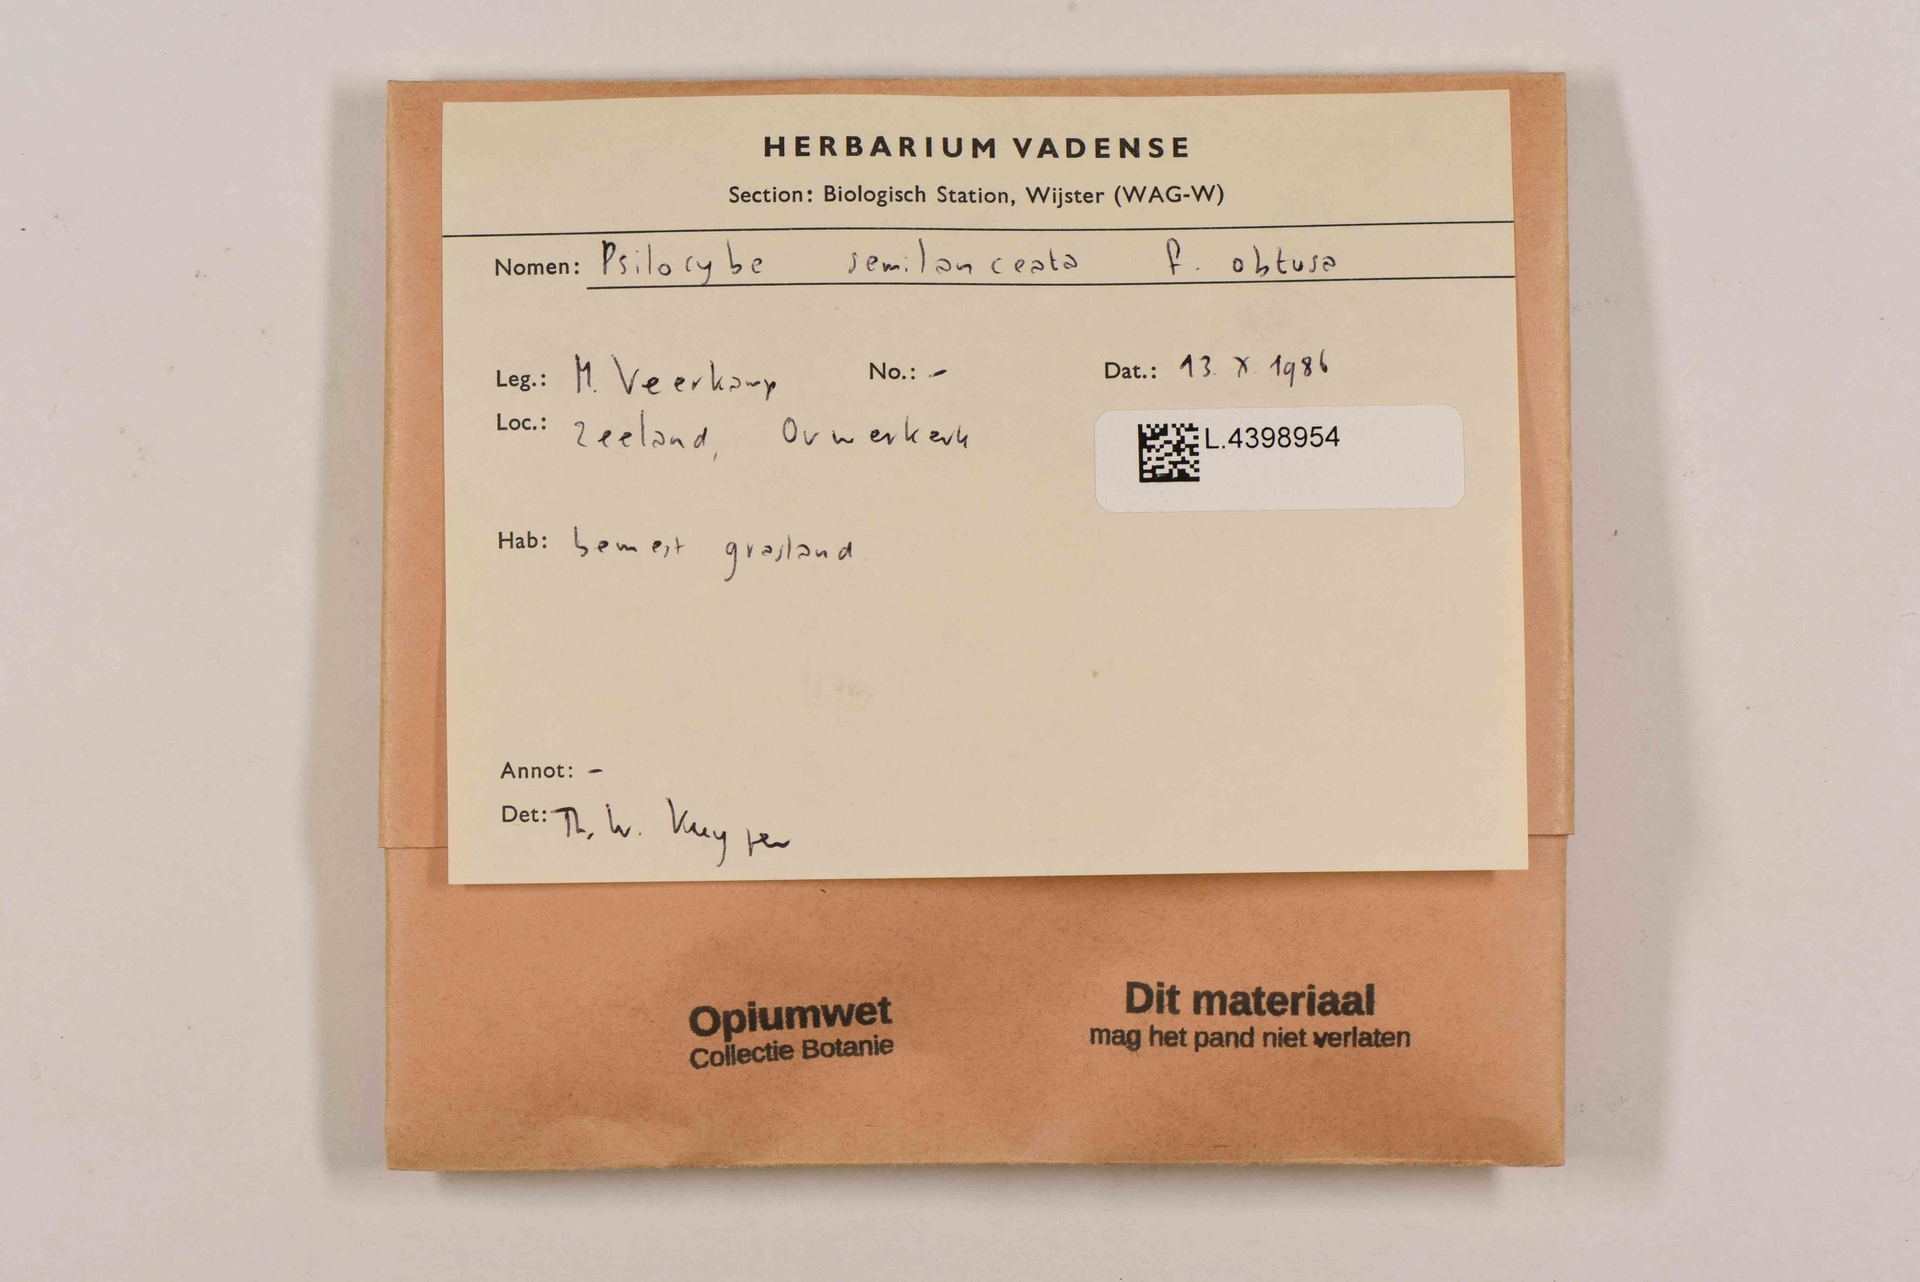 HERBARIUM VADENSE
Section: Biologisch Station, Wijster (WAG-W)
Nomen: Psilocybe semilanceata f. obtusa
Leg.: M. Veerkamp No.: - Dat.: 13. X. 1986
Loc.: Zeeland, Ouwerkerk
L.4398954
Hab: bemest grasland
Annot: -
Det: Th. W. Kuyper
Opiumwet
Collectie Botanie
Dit materiaal
mag het pand niet verlaten